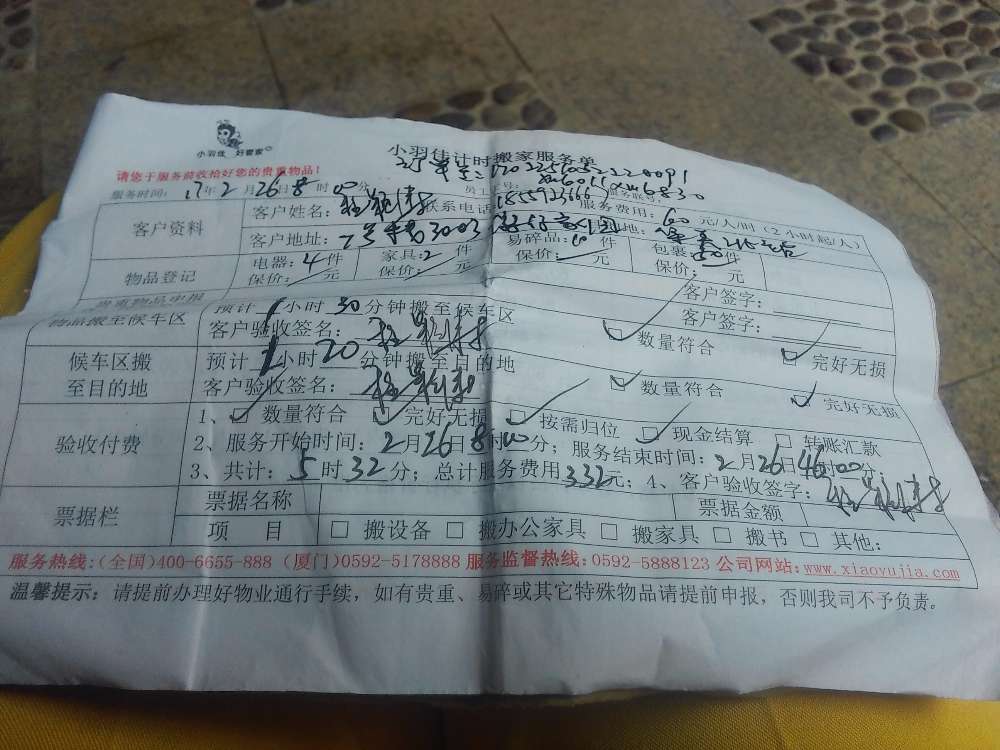 小羽佳 好管家
小羽佳计时搬家服务单
请您于服务前收拾好您的贵重物品!
服务时间: 17年2月26日8时00分 员工工号: xm6011 xm6830
客户资料 客户姓名: 联系电话 服务费用: 60元/人/时(2小时起/人)
客户地址:
物品登记 电器: 4件 家具: 2件 易碎品: 件 包裹: 件
保价: 元 保价: 元 保价: 元 保价: 元
贵重物品申报 客户签字:
物品搬至候车区 预计 小时30分钟搬至候车区 客户签字:
客户验收签名: 数量符合 完好无损
候车区搬至目的地 预计 小时20分钟搬至目的地
客户验收签名: 数量符合 完好无损
验收付费 1、 数量符合 完好无损 按需归位 现金结算 转账汇款
2、服务开始时间: 2月26日8时00分; 服务结束时间: 2月26日 时 分;
3、共计: 5时32分; 总计服务费用332元; 4、客户验收签字:
票据栏 票据名称 票据金额
项 目 搬设备 搬办公家具 搬家具 搬书 其他:
服务热线:(全国)400-6655-888 (厦门)0592-5178888 服务监督热线:0592-5888123 公司网站:www.xiaoyujia.com
温馨提示: 请提前办理好物业通行手续, 如有贵重、易碎或其它特殊物品请提前申报, 否则我司不予负责。